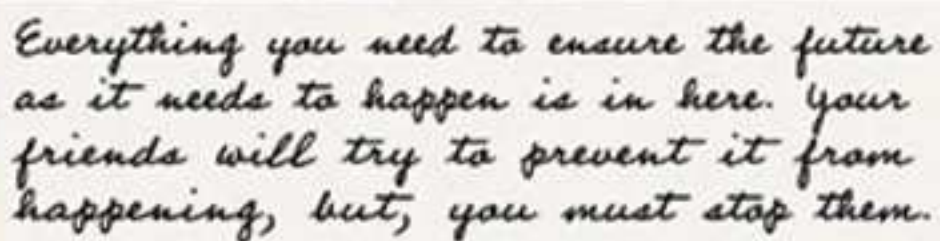 Everything you need to ensure the future
as it needs to happen is in here. Your
friends will try to prevent it from
happening, but, you must stop them.